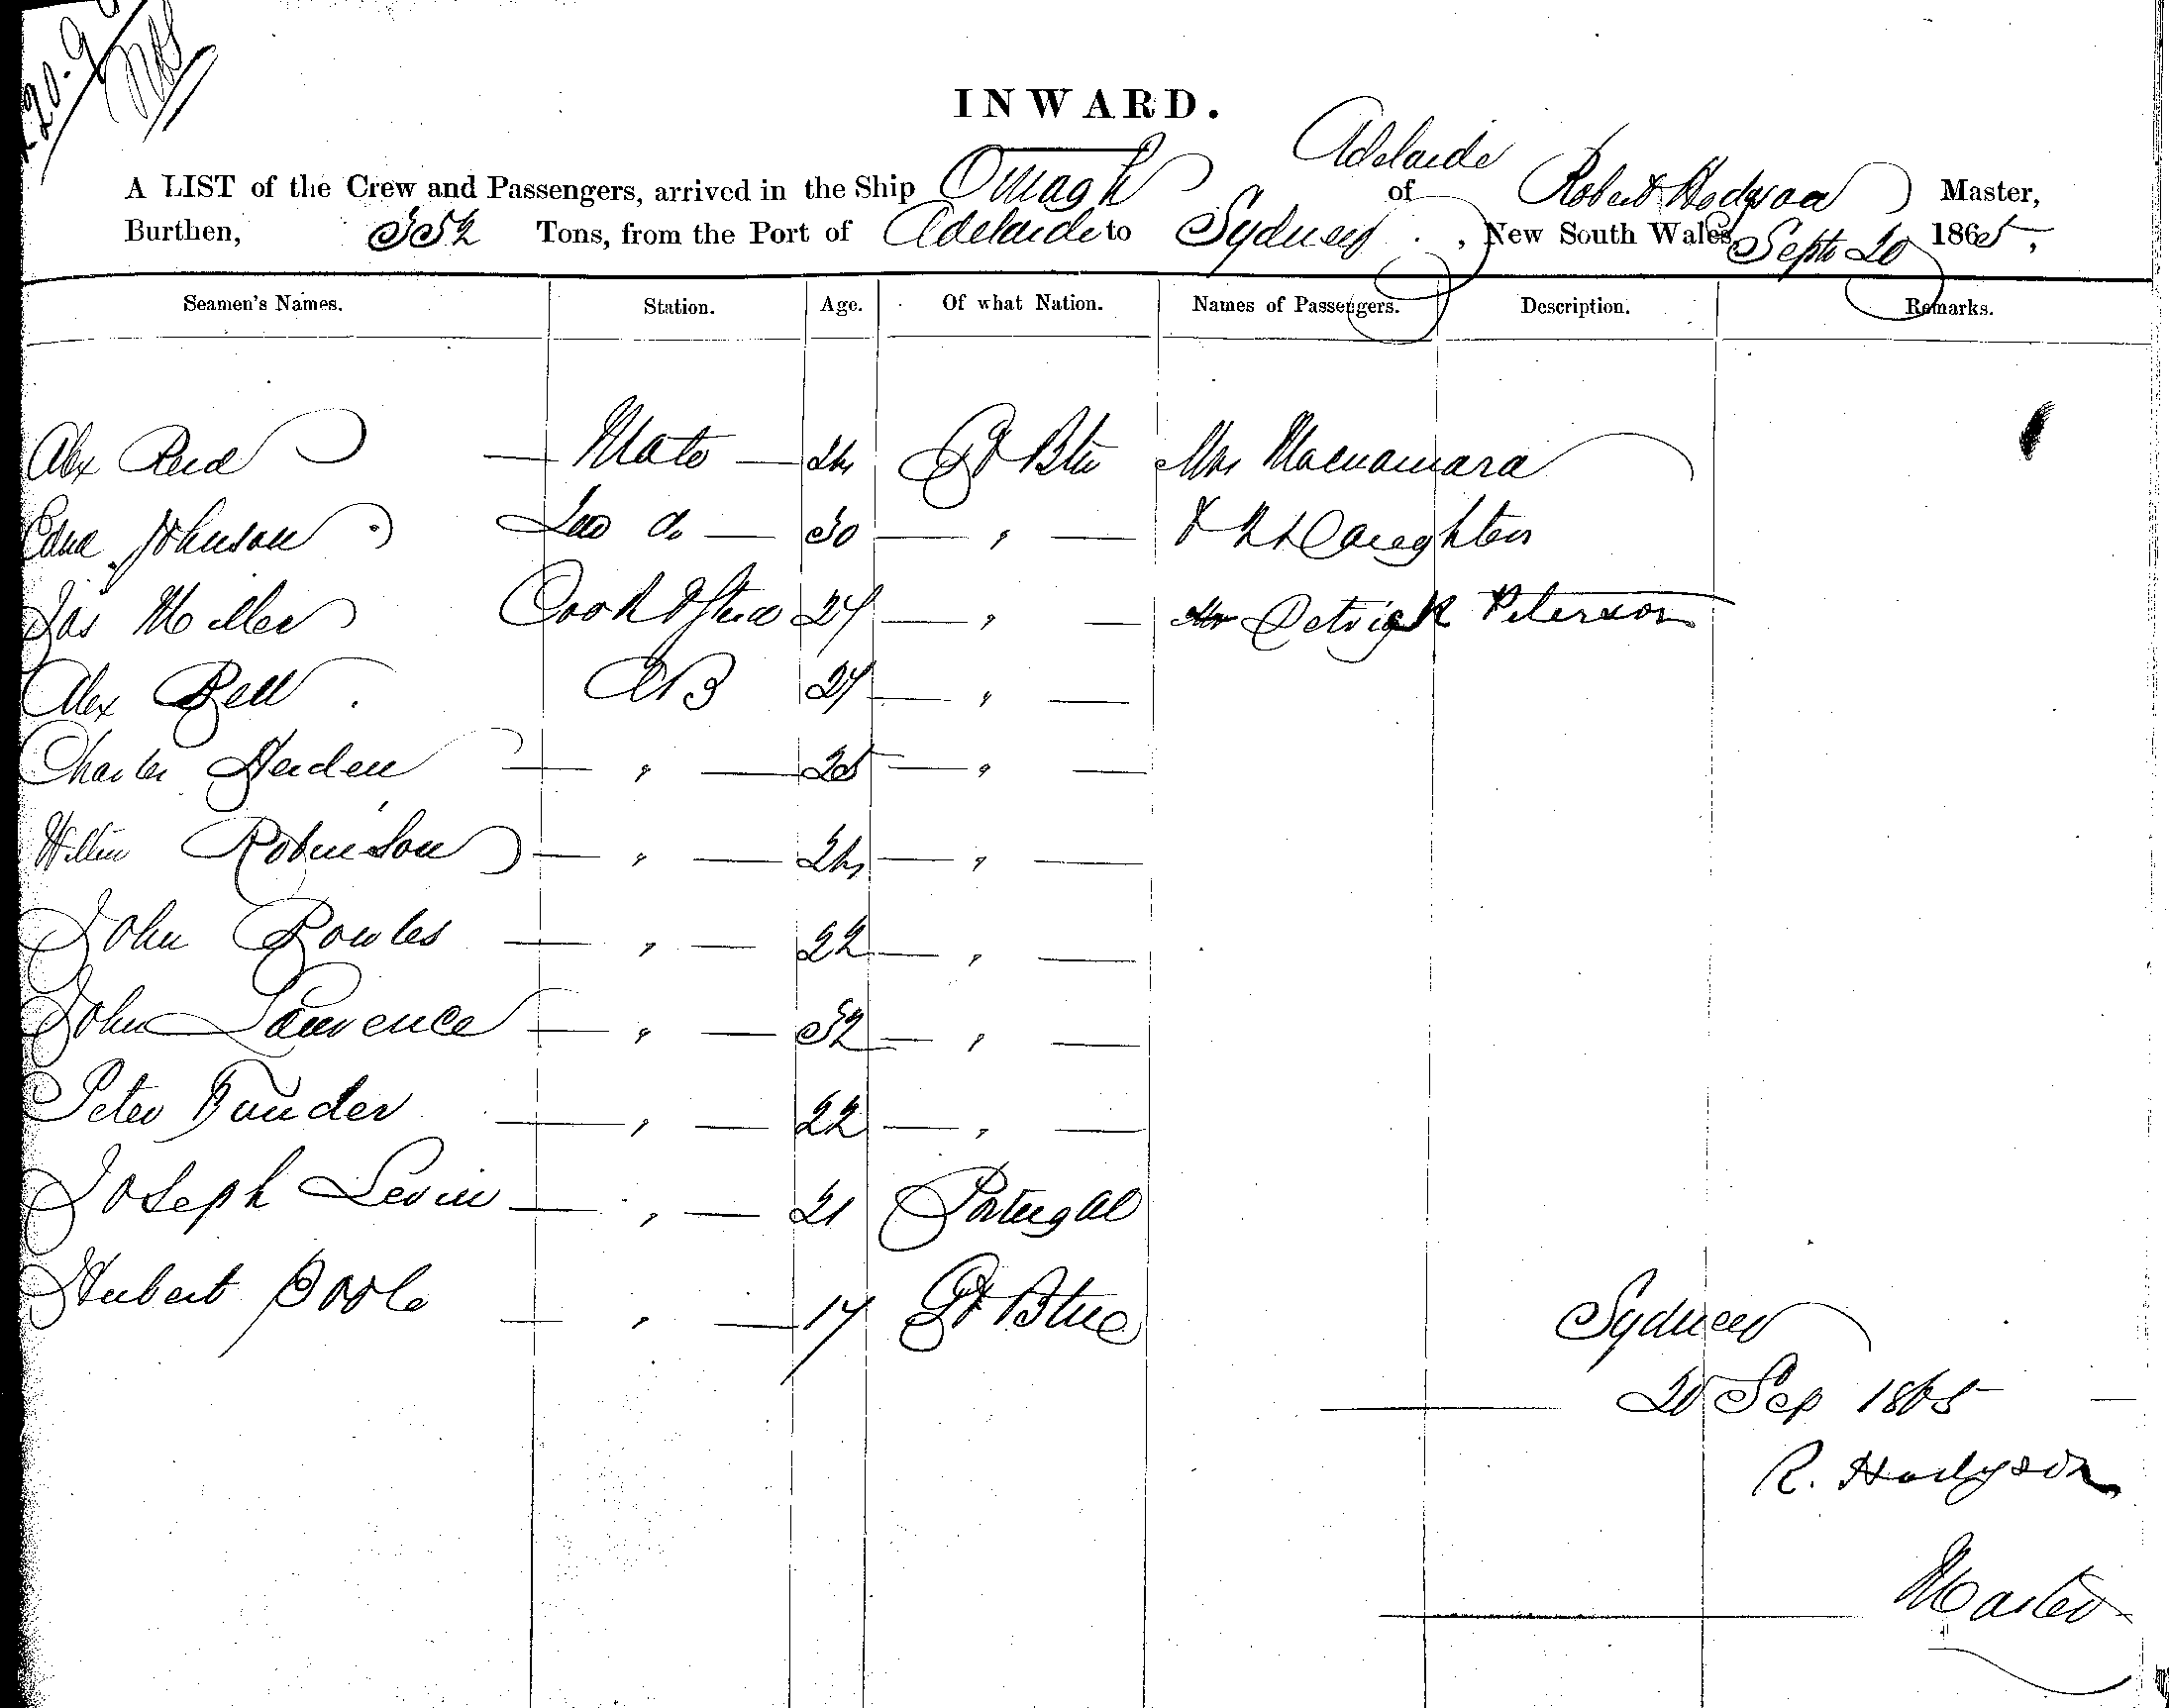 20.9
INWARD.
A LIST of the Crew and Passengers, arrived in the Ship Omagh of Adelaide Robert Hodgson Master,
Burthen, 352 Tons, from the Port of Adelaide to Sydney, New South Wales, Septr 20 1865,
Seamen's Names. Station. Age. Of what Nation. Names of Passengers. Description. Remarks.
Alex Reid — Mate — 24 Gt Btn Mrs Macnamara
Johnson do — 30 — " — & 2 Daughters
Jas Miller Cook & Stew 27 — " — Detrick Peterson
Alex Bell AB 27 — " —
Charles — " — 25 — " —
Robinson — " — 24 — " —
John Rowles — " — 22 — " —
John Lawrence — " — 32 — " —
Peter — " — 22 — " —
Joseph Levin — " — 21 Portugal
Hubert Poole — " — 17 Gt Btne
Sydney
20 Sep 1865
R. Hodgson
Master